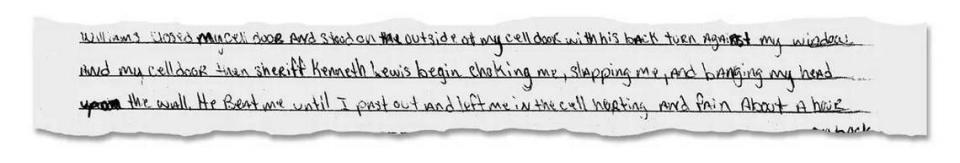 Williams closed my cell door And stood on the outside of my cell door with his back turn Against my window
And my cell door then sheriff Kenneth Lewis begin choking me, slapping me, And banging my head
upon the wall. He Beat me until I past out And left me in the cell hurting And Pain About A hour
back